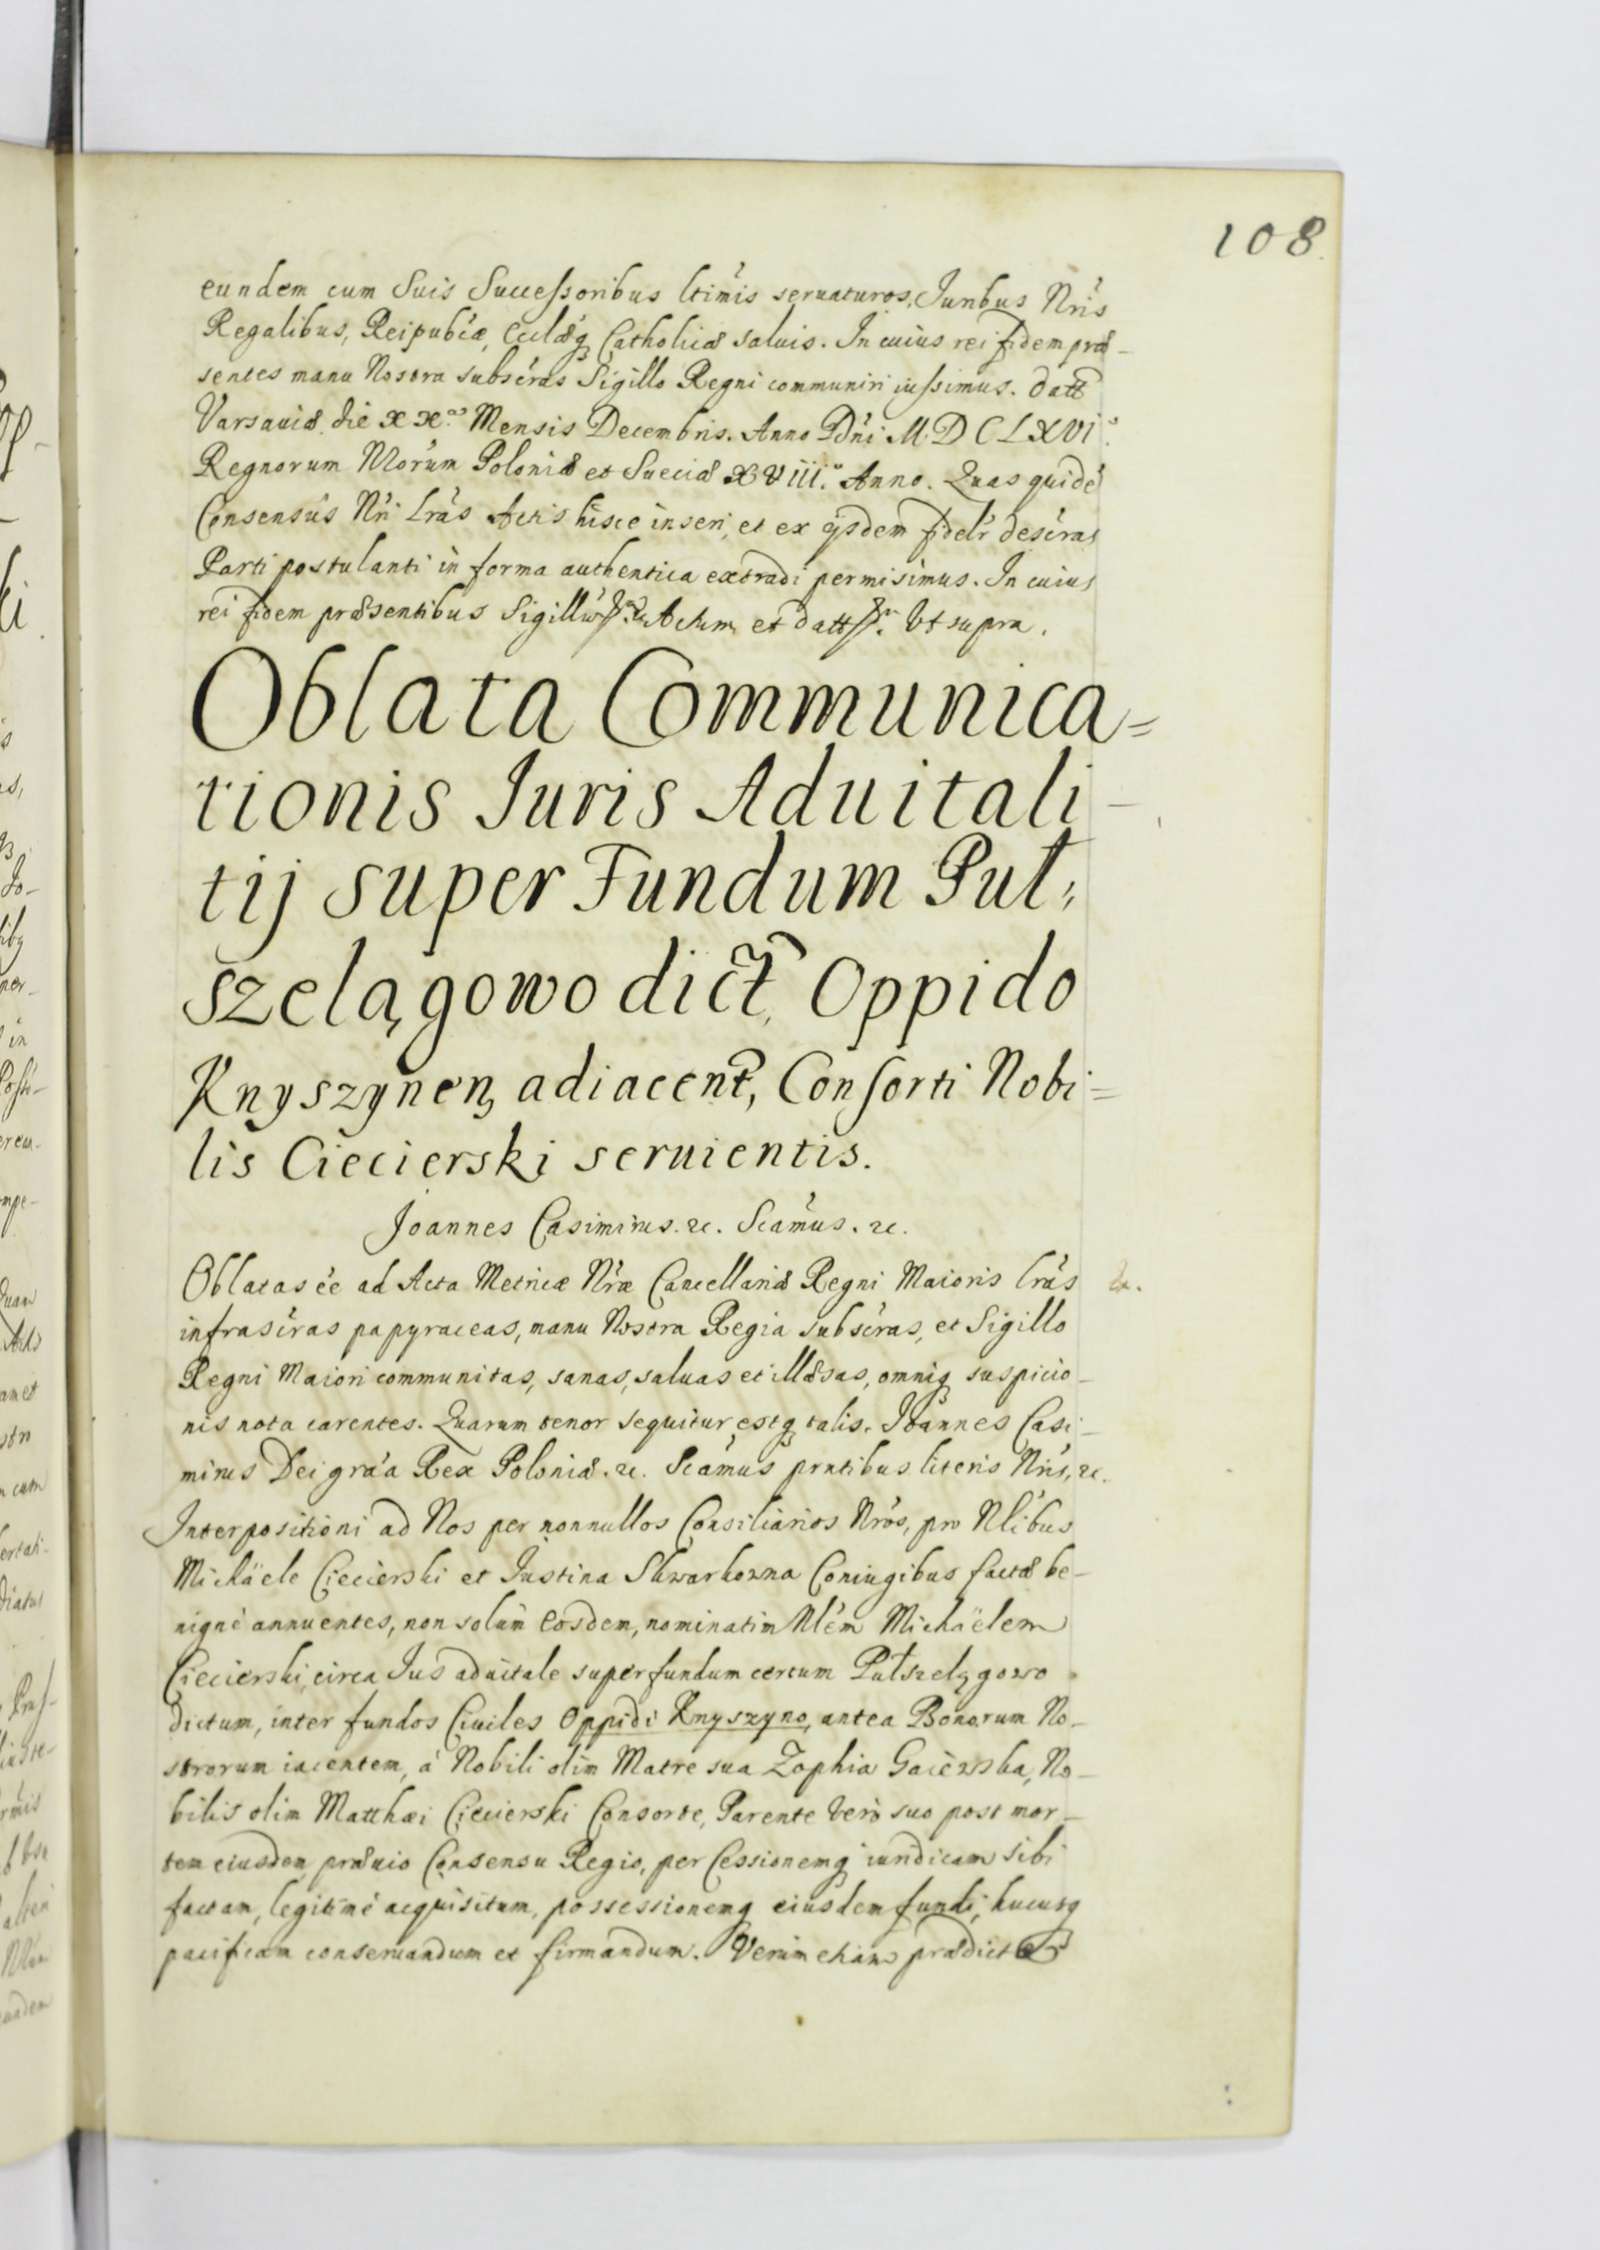 108
eundem cum Suis Successoribus ltimis seruaturos, Iuribus Nris
Regalibus, Reipubcæ, Ecclæq Catholicæ saluis. In cuius rei fidem præ-
sentes manu Nostra subscras Sigillo Regni communiri iussimus. Datt
Varsauiæ die XXa Mensis Decembris. Anno Dni M.DCLXVIo.
Regnorum Nrorum Poloniæ et Sueciæ XVIIIo. Anno. Quas quidé
Consensús Nri Lrás Actis hisce inseri, et ex ijsdem fidelr descras
Parti postulanti in forma authentica extradi permisimus. In cuius
rei fidem præsentibus Sigillú Actum et datt Ut supra.
Oblata Communica=
tionis Iuris Aduitali-
tij super Fundum Puł,
szelągowo dict, Oppido
Knyszynen adiacent, Consorti Nobi=
lis Ciecierski seruientis.
Joannes Casimirus. &c. Scámus. &c.
Oblatas ée ad Acta Metricæ Nræ Cancellariæ Regni Maioris lrás
infrascras papyraceas, manu Nostra Regia subscras, et Sigillo
Regni Maiori communitas, sanas, saluas et illæsas, omniq suspicio-
nis nota carentes. Quarum tenor sequitur estq talis. Joannes Casi-
mirus Dei gráa Rex Poloniæ. &c. Scámus prntibus literis Nris, &c.
Interpositioni ad Nos per nonnullos Consiliarios Nrós, pro Nlibus
Michäele Ciecierski et Justina Skwarkowna Coniugibus factæ be-
nignè annuentes, non solùm Eosdem, nominatim Nlém Michäelem
Ciecierski, circa Jus aduitale super fundum certum Pułszelągowo
dictum, inter fundos Ciuiles Oppidi Knyszyno, antea Bonorum No-
strorum iacentem, á Nobili olim Matre sua Zophia Gaiewska, No-
bilis olim Matthæi Ciecierski Consorte, Parente verò suo post mor-
tem eiusdem præuio Consensu Regio, per Cessionemq iuridicam sibi
factam, legitimè acquisitum, possessionemq eiusdem fundi, hucusq
pacificam conseruandum et firmandum. Verùm etiam prædict